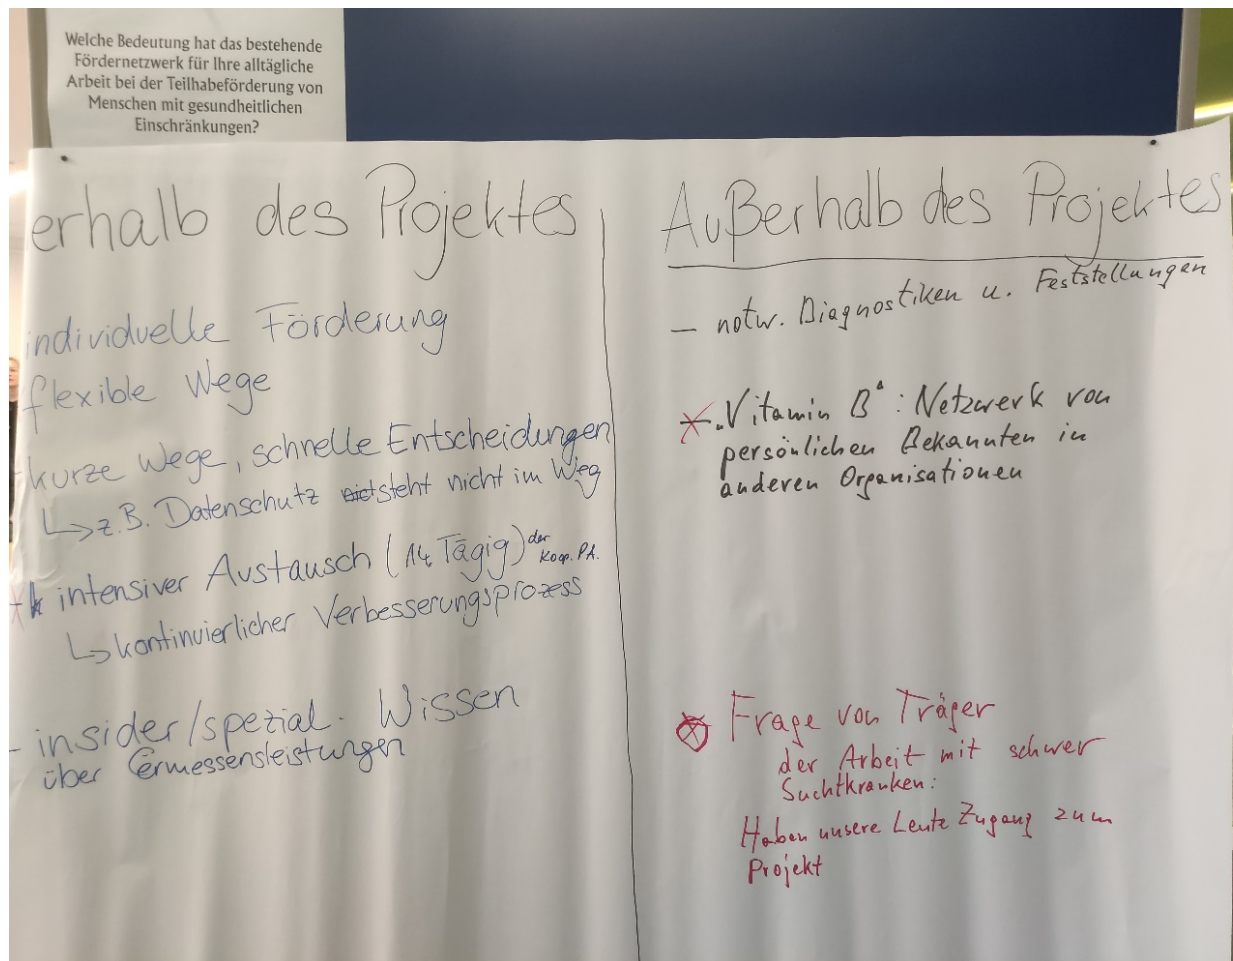 Welche Bedeutung hat das bestehende
Fördernetzwerk für Ihre alltägliche
Arbeit bei der Teilhabeförderung von
Menschen mit gesundheitlichen
Einschränkungen?
erhalb des Projektes
individuelle Förderung
flexible Wege
- kurze Wege, schnelle Entscheidungen
↳ z.B. Datenschutz steht nicht im Weg
intensiver Austausch (14 Tägig) der
Koop. PA.
↳ kontinuierlicher Verbesserungsprozess
- insider/spezial. Wissen
über Ermessensleistungen
Außerhalb des Projektes
- notw. Diagnostiken u. Feststellungen
- "Vitamin B": Netzwerk von
persönlichen Bekannten in
anderen Organisationen
Frage von Träger
der Arbeit mit schwer
Suchtkranken:
Haben unsere Leute Zugang zum
Projekt